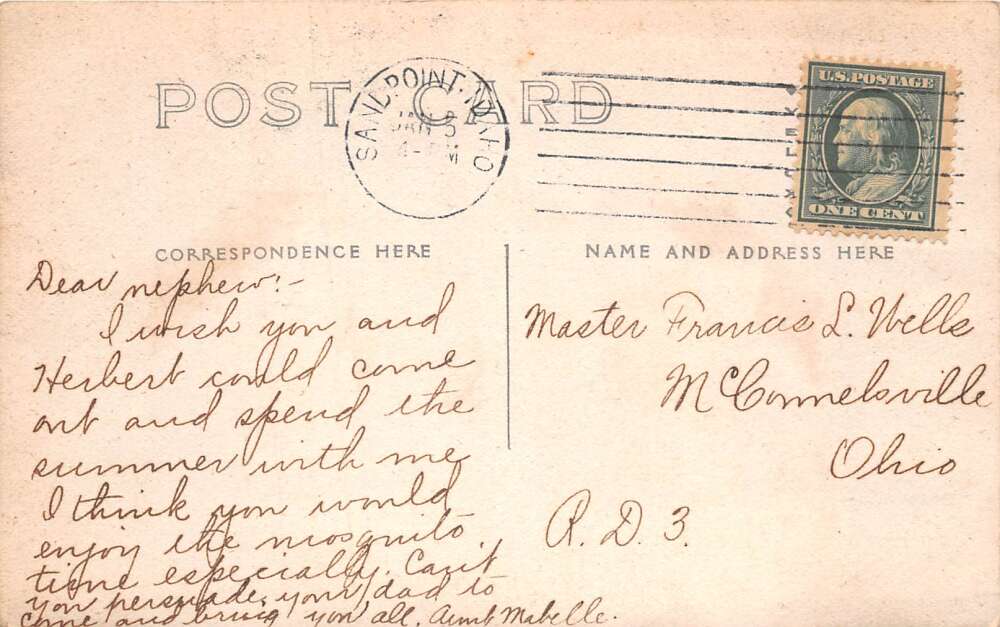 POST CARD
SANDPOINT, IDAHO
JAN 3
4-PM
U.S. POSTAGE
ONE CENT
CORRESPONDENCE HERE
NAME AND ADDRESS HERE
Dear nephew:-
I wish you and
Herbert could come
out and spend the
summer with me
I think you would
enjoy the mosquito
time especially. Can't
you persuade your dad to
come and bring you all. Aunt Mabelle.
Master Francis L. Wells
McConnelsville
Ohio
R. D. 3.